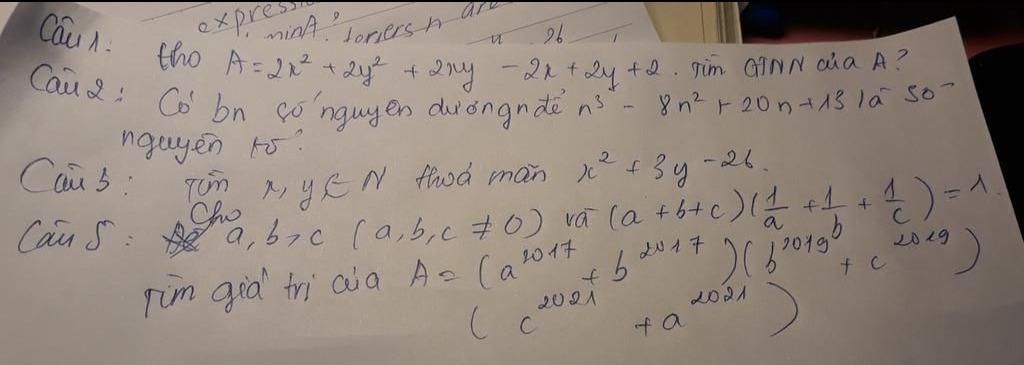 expressi
minA?
Câu 1: Cho A = 2x² + 2y² + 2xy - 2x + 2y + 2. Tìm GTNN của A?
Câu 2: Có bn số nguyên dương n để n³ - 8n² + 20n + 13 là số
nguyên tố?
Câu 3: Tìm x, y ∈ N thoả mãn x² + 3y - 26.
Câu 5: Cho a, b, c (a, b, c ≠ 0) và (a + b + c)(1/a + 1/b + 1/c) = 1.
Tìm giá trị của A = (a²⁰¹⁷ + b²⁰¹⁷)(b²⁰¹⁹ + c²⁰¹⁹)
(c²⁰²¹ + a²⁰²¹)